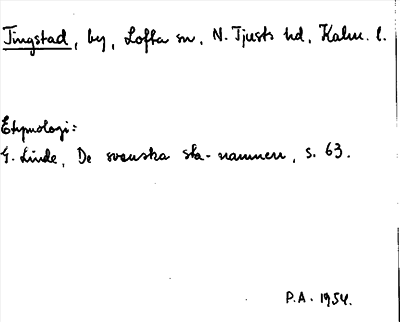 Tingstad, by, Lofta sn, N. Tjusts hd, Kalm. l.
Etymologi:
G. Linde, De svenska sta-namnen, s. 63.
P.A. 1954.